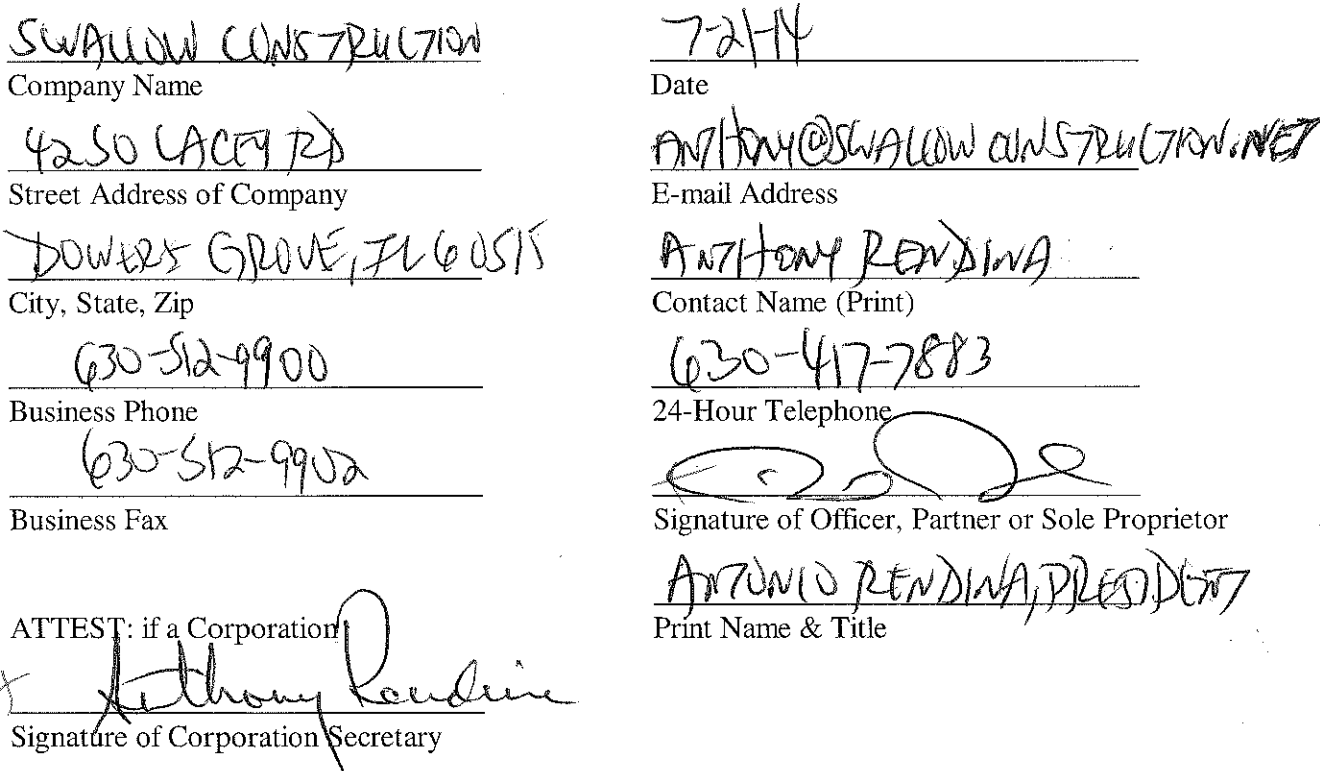 SWALLOW CONSTRUCTION
Company Name
4250 LACEY RD
Street Address of Company
DOWERS GROVE, IL 60515
City, State, Zip
630-512-9900
Business Phone
630-512-9902
Business Fax
ATTEST: if a Corporation
Anthony Rendina
Signature of Corporation Secretary
7-21-14
Date
ANTHONY@SWALLOWCONSTRUCTION.NET
E-mail Address
ANTHONY RENDINA
Contact Name (Print)
630-417-7883
24-Hour Telephone
Signature of Officer, Partner or Sole Proprietor
ANTONIO RENDINA, PRESIDENT
Print Name & Title